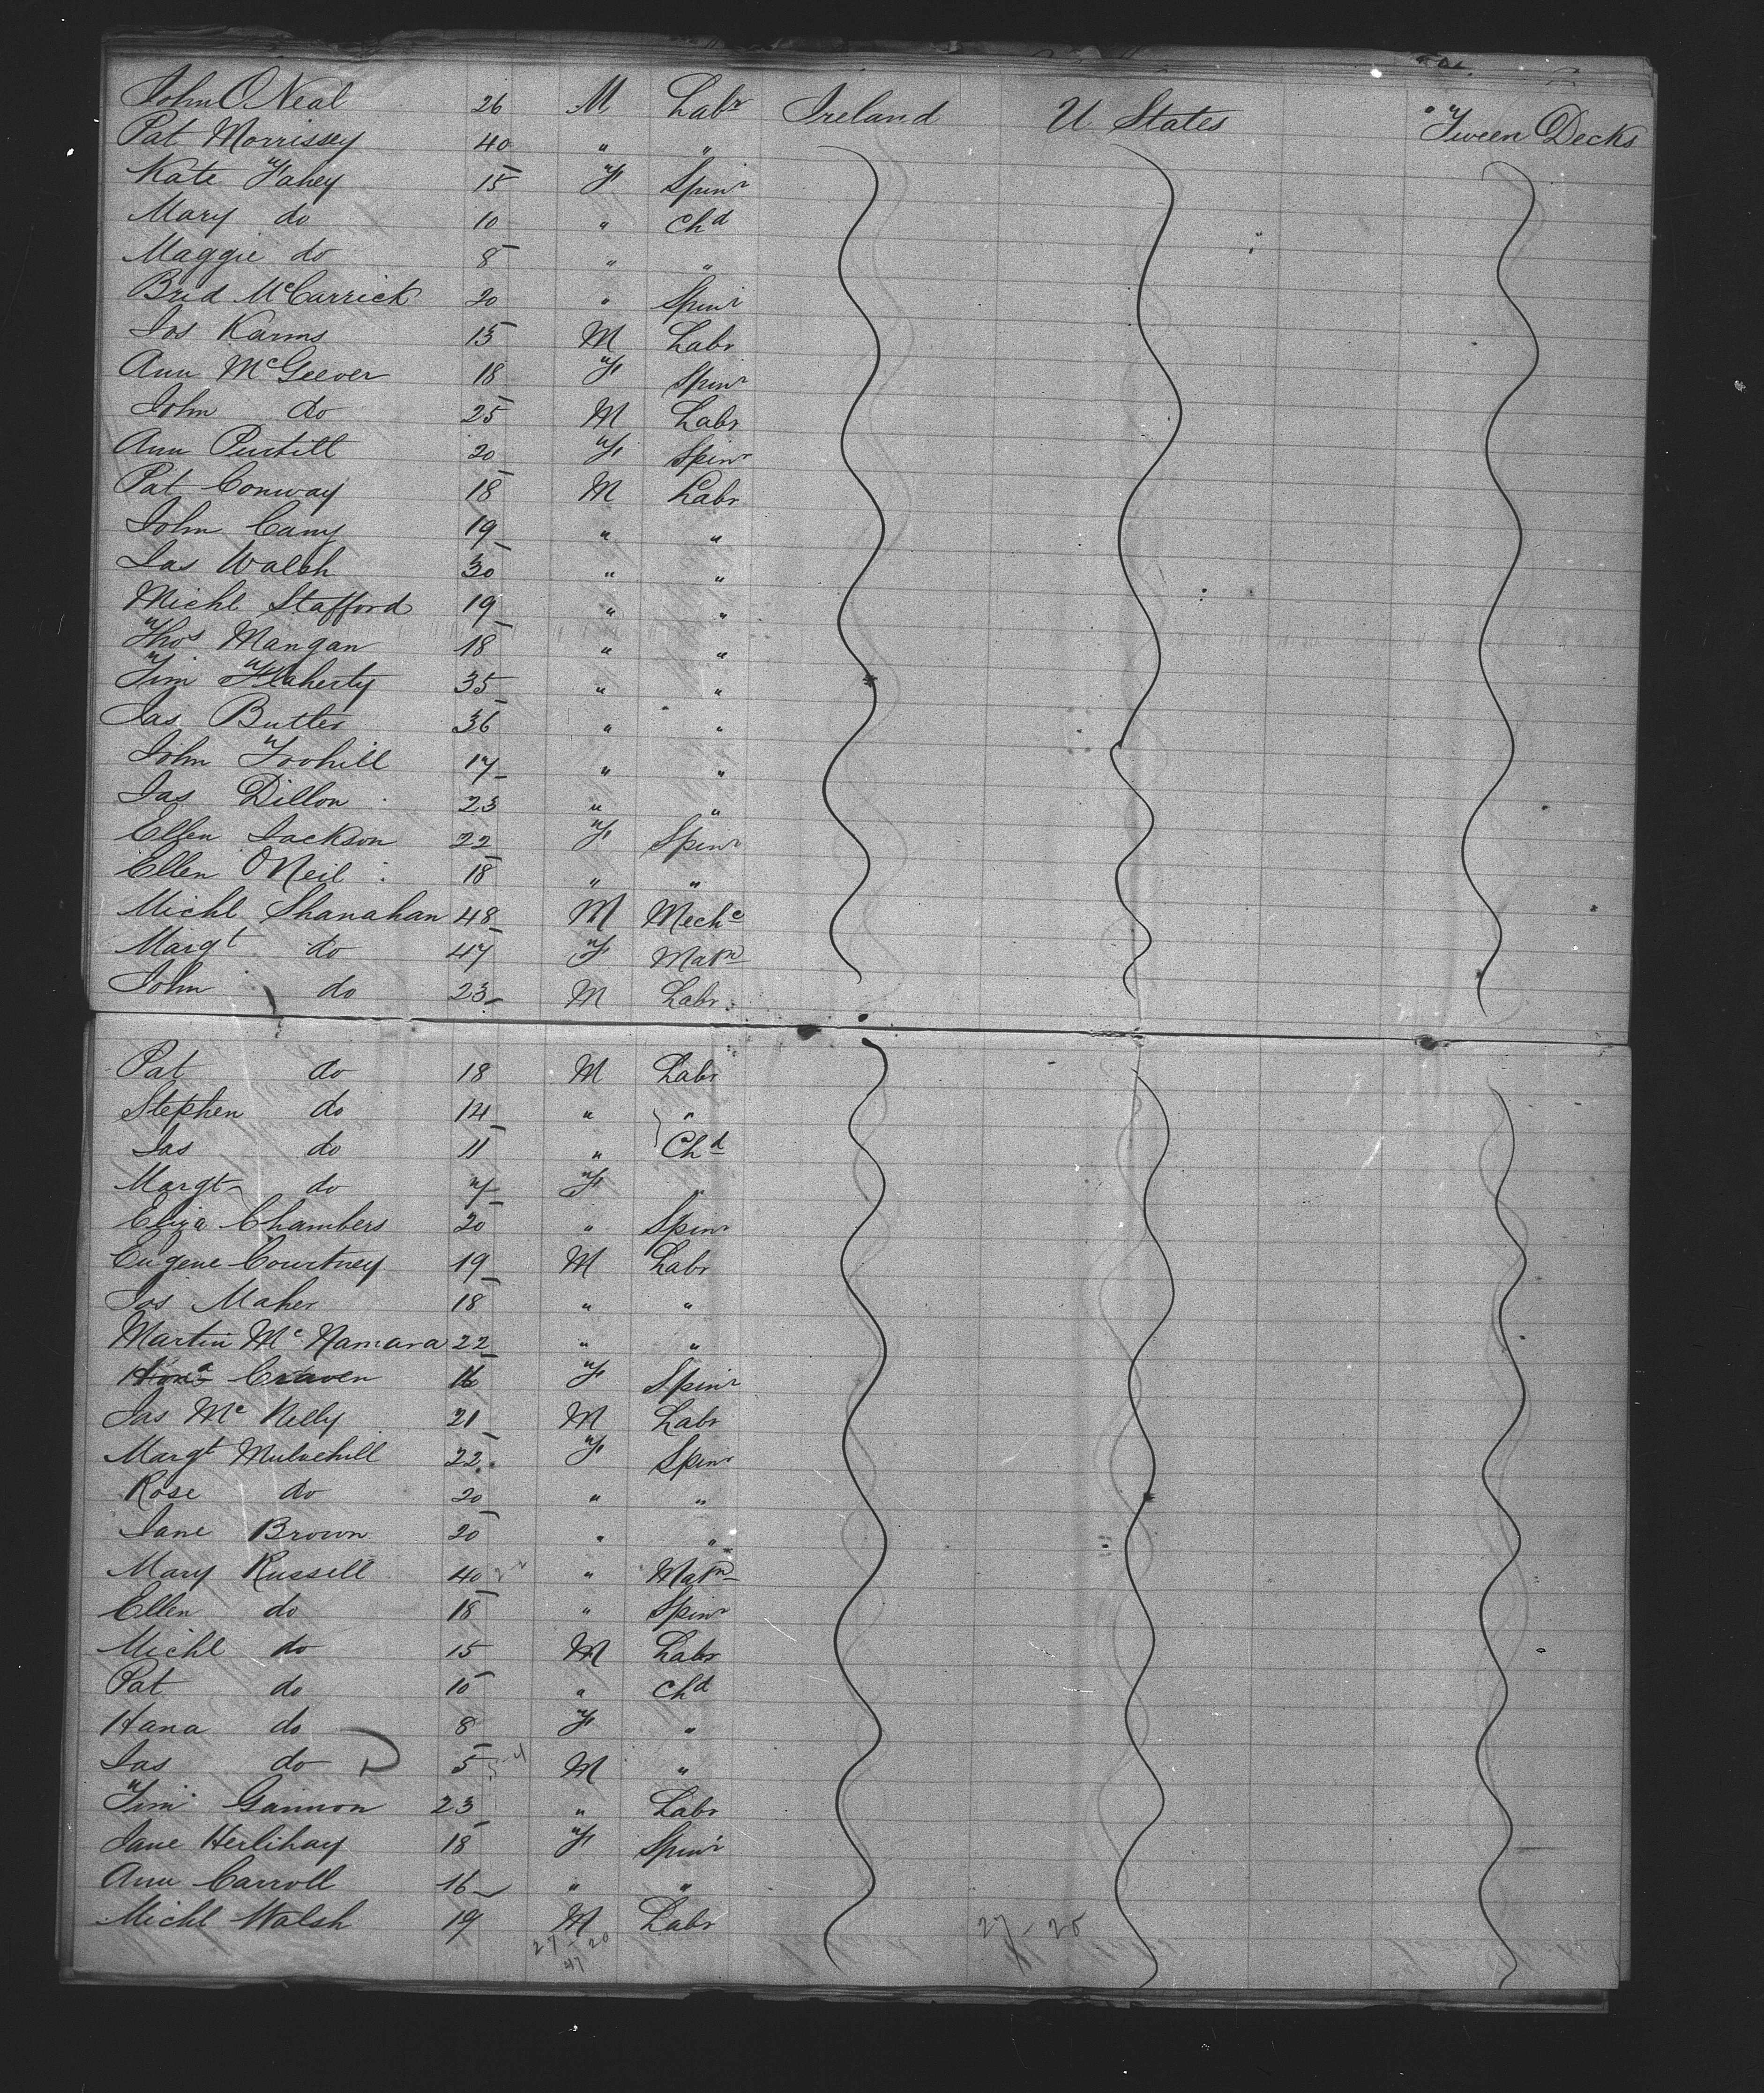 John O Neal 26 M Labr Ireland U. States 'Tween Decks
Pat Morrissey 40 " "
Kate Fahey 15 F Spinr
Mary do 10 " Chd
Maggie do 8 " "
Brid McCarrick 20 " Spinr
Jos Karms 15 M Labr
Ann McGeever 18 F Spinr
John do 25 M Labr
Ann Purtill 20 F Spinr
Pat Conway 18 M Labr
John Cany 19 " "
Jas Walsh 30 " "
Michl Stafford 19 " "
Thos Mangan 18 " "
Tim Flaherty 35 " "
Jas Butler 36 " "
John Toohill 17 " "
Jas Dillon 23 " "
Ellen Jackson 22 F Spinr
Ellen O Neil 18 " "
Michl Shanahan 48 M Mechc
Margt do 47 F Matn
John do 23 M Labr
Pat do 18 M Labr
Stephen do 14 " "
Jas do 11 " Chd
Margt do 7 F "
Eliza Chambers 20 " Spinr
Eugene Courtney 19 M Labr
Jos Maher 18 " "
Martin Mc Namara 22 " "
Hona Craven 16 F Spinr
Jas Mc Nelly 21 M Labr
Margt Mulvehill 22 F Spinr
Rose do 20 " "
Jane Brown 20 " "
Mary Russell 40 " Matn
Ellen do 18 " Spinr
Michl do 15 M Labr
Pat do 10 " Chd
Hana do 8 F "
Jas do 5 M "
Tim Gannon 23 " Labr
Jane Herlihay 18 F Spinr
Ann Carroll 16 " "
Michl Walsh 19 M Labr
27 - 20 27 - 20
47